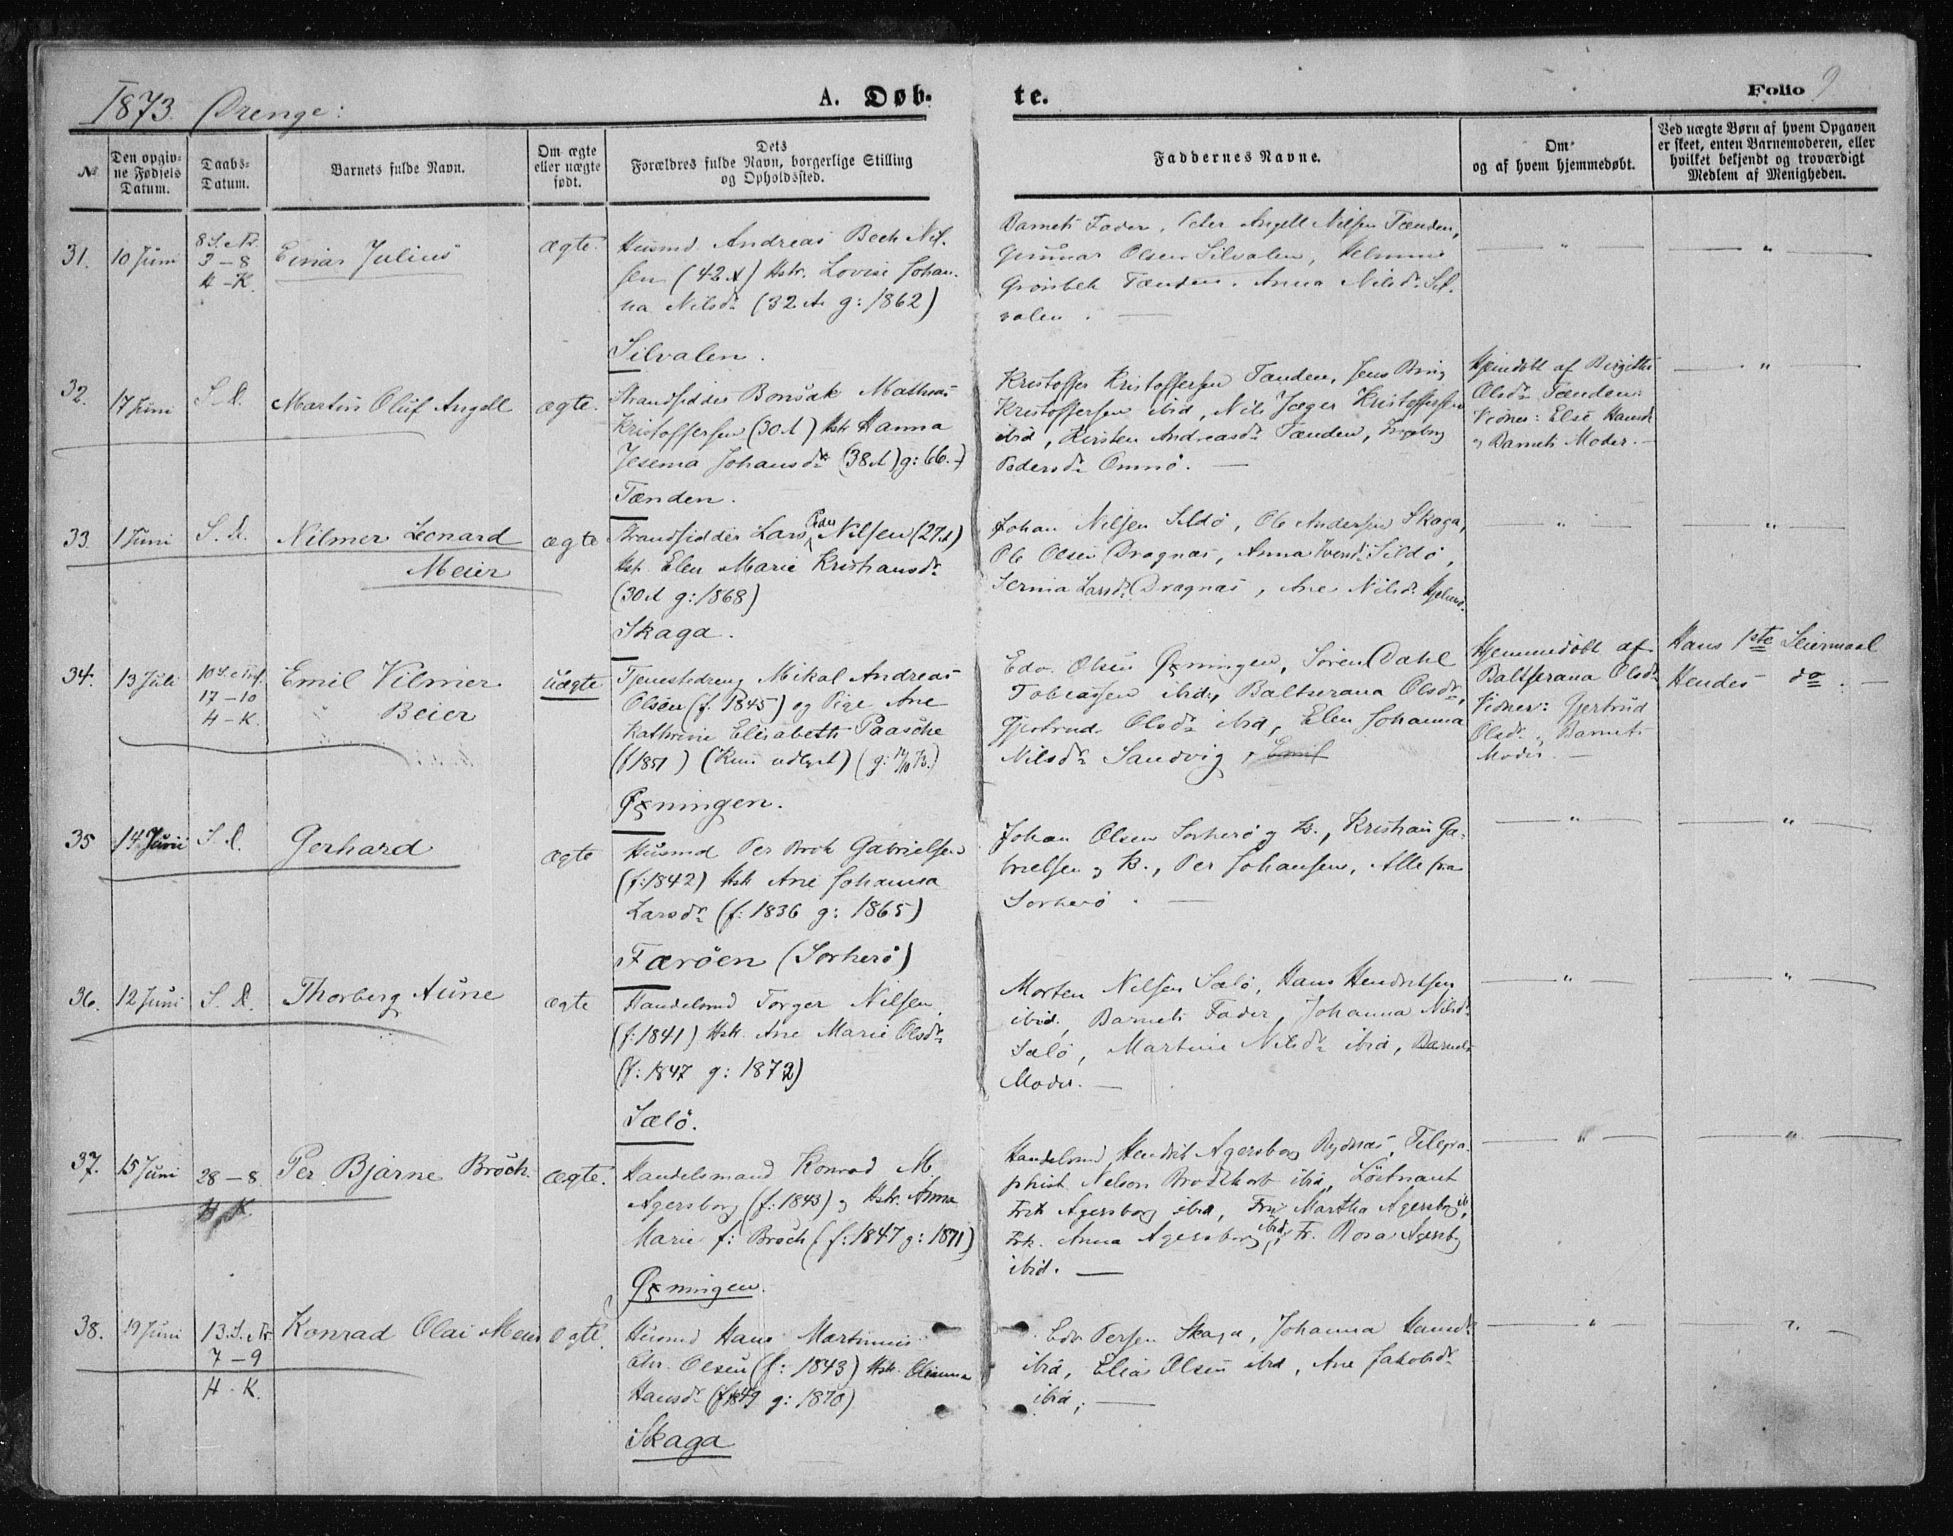 1873. Drenge: A. Døb- te. Folio 9
№
Den opgivne Fødsels Datum.
Daabs-Datum.
Barnets fulde Navn.
Om ægte eller uægte født.
Dets Forældres fulde Navn, borgerlige Stilling og Opholdssted.
Faddernes Navne.
Om og af hvem hjemmedøbt.
Ved uægte Børn af hvem Opgaven er skeet, enten Barnemoderen, eller hvilket bekjendt og troværdigt Medlem af Menigheden.
31. 10 Juni
3-8
H-K.
Einar Julius
ægte.
Husmd Andreas Bech Nil-
sen (42 A) Hstr. Lovise Johan-
na Nilsdr (32 A g: 1862)
Silvalen.
Barnets Fader, Peter Angell Nilsen Tænden,
Gunnar Olsen Silvalen,
Tænden, Anna Nilsdr Sil-
valen. —
— " —
— " —
32. 17 Juni S. D. Martin Oluf Angell ægte.
Strandsidder Bonsak Mathias
Kristoffersen (30 A) Hstr Hanna
Jesema Johansdr (38 A) g: 66.-)
Tænden.
Kristoffer Kristoffersen Tænden, Jens Bing
Kristoffersen ibid, Nils Jæger Kristoffersen
ibid, Kirsten Andreasdr Tænden, Ingebrg
Pedersdr Omnø. —
Hjemdøbt af Birgitte
Olsdr Tænden:
Vidner: Else Hansdr
og Barnets Moder. —
— " —
33. 1 Juni S. D. Nilmer Leonard
Meier
ægte
Strandsidder Lars Peder Nilsen (27 A)
Hstr. Elen Marie Kristiansdr
(30 A g: 1868)
Skaga.
Johan Nilsen Sildø, Ole Andersen Skaga,
Ole Olsen Dragnæs, Anna Iversdr Sildø,
Larsdr Dragnæs, Ane Nilsdr
— " —
— " —
34. 13 Juli
17-10
H-K.
Emil Vilmer
Beier
uægte
Tjenestedreng Mikal Andreas
Olsen (f. 1845) og Pige Ane
Kathrine Elisabeth Paasche
(f 1851)
Øxningen.
Edv. Olsen Øxningen, Søren Dahl
Tobiassen ibid, Baltserana Olsdr,
Gjertrud Olsdr ibid, Elen Johanna
Nilsdr Sandvig, Emil
Hjemmedøbt af
Baltserana Olsdr
Vidner: Gjertrud
Olsdr. Barnets
Moder. —
Hans 1ste Leiermaal
Hendes do . —
35 14 Juni S. D. Gerhard ægte
Husmd Per Brok Gabrielsen
(f: 1842) Hstr Ane Johanna
Larsdr (f: 1836 g: 1865)
Færöen (Sorherö)
Johan Olsen Sorherö og K., Kristian Ga-
brielsen og K., Per Johansen, Alle fra
Sorherö. —
— " —
— " —
36. 12 Juni S. D. Thorberg Aune ægte
Handelsmd Torger Nilsen
(f: 1841) Hstr. Ane Marie Olsdr
(f: 1847 g: 1872)
Sælö.
Morten Nilsen Sælö, Hans Hendriksen
ibid, Barnets Fader, Johanna Nilsdr
Sælö, Martine Nilsdr ibid, Barnets
Moder. —
— " —
— " —
37. 15 Juni 28-8
H. K.
Per Bjarne Broch. ægte.
Handelsmand Konrad M
Agersborg (f: 1843) og Hstr Anna
Marie f: Broch (f: 1847 g: 1871)
Øxningen.
Handelsmd Hendrik Agersborg Rydsnæs, Telegra-
phist Nelson Brodtkorb ibid, Löitnant
Agersborg ibid, Fru Martha Agersborg ib,
Frk. Anna Agersborg ibid, Fr. Rosa Agersborg
ibid. —
— " —
— " —
38. 19 Juni
7-9
H-K.
Konrad Olai Meier ægte.
Husmd Hans Martinus
Chr. Olsen (f: 1843) Hstr. Olianna
Hansdr (f 1849 g: 1870)
Skaga
Edv Persen Skaga, Johanna Hansdr
ibid, Elias Olsen ibid, Ane Jakobsdr
ibid, —
— " —
— " —